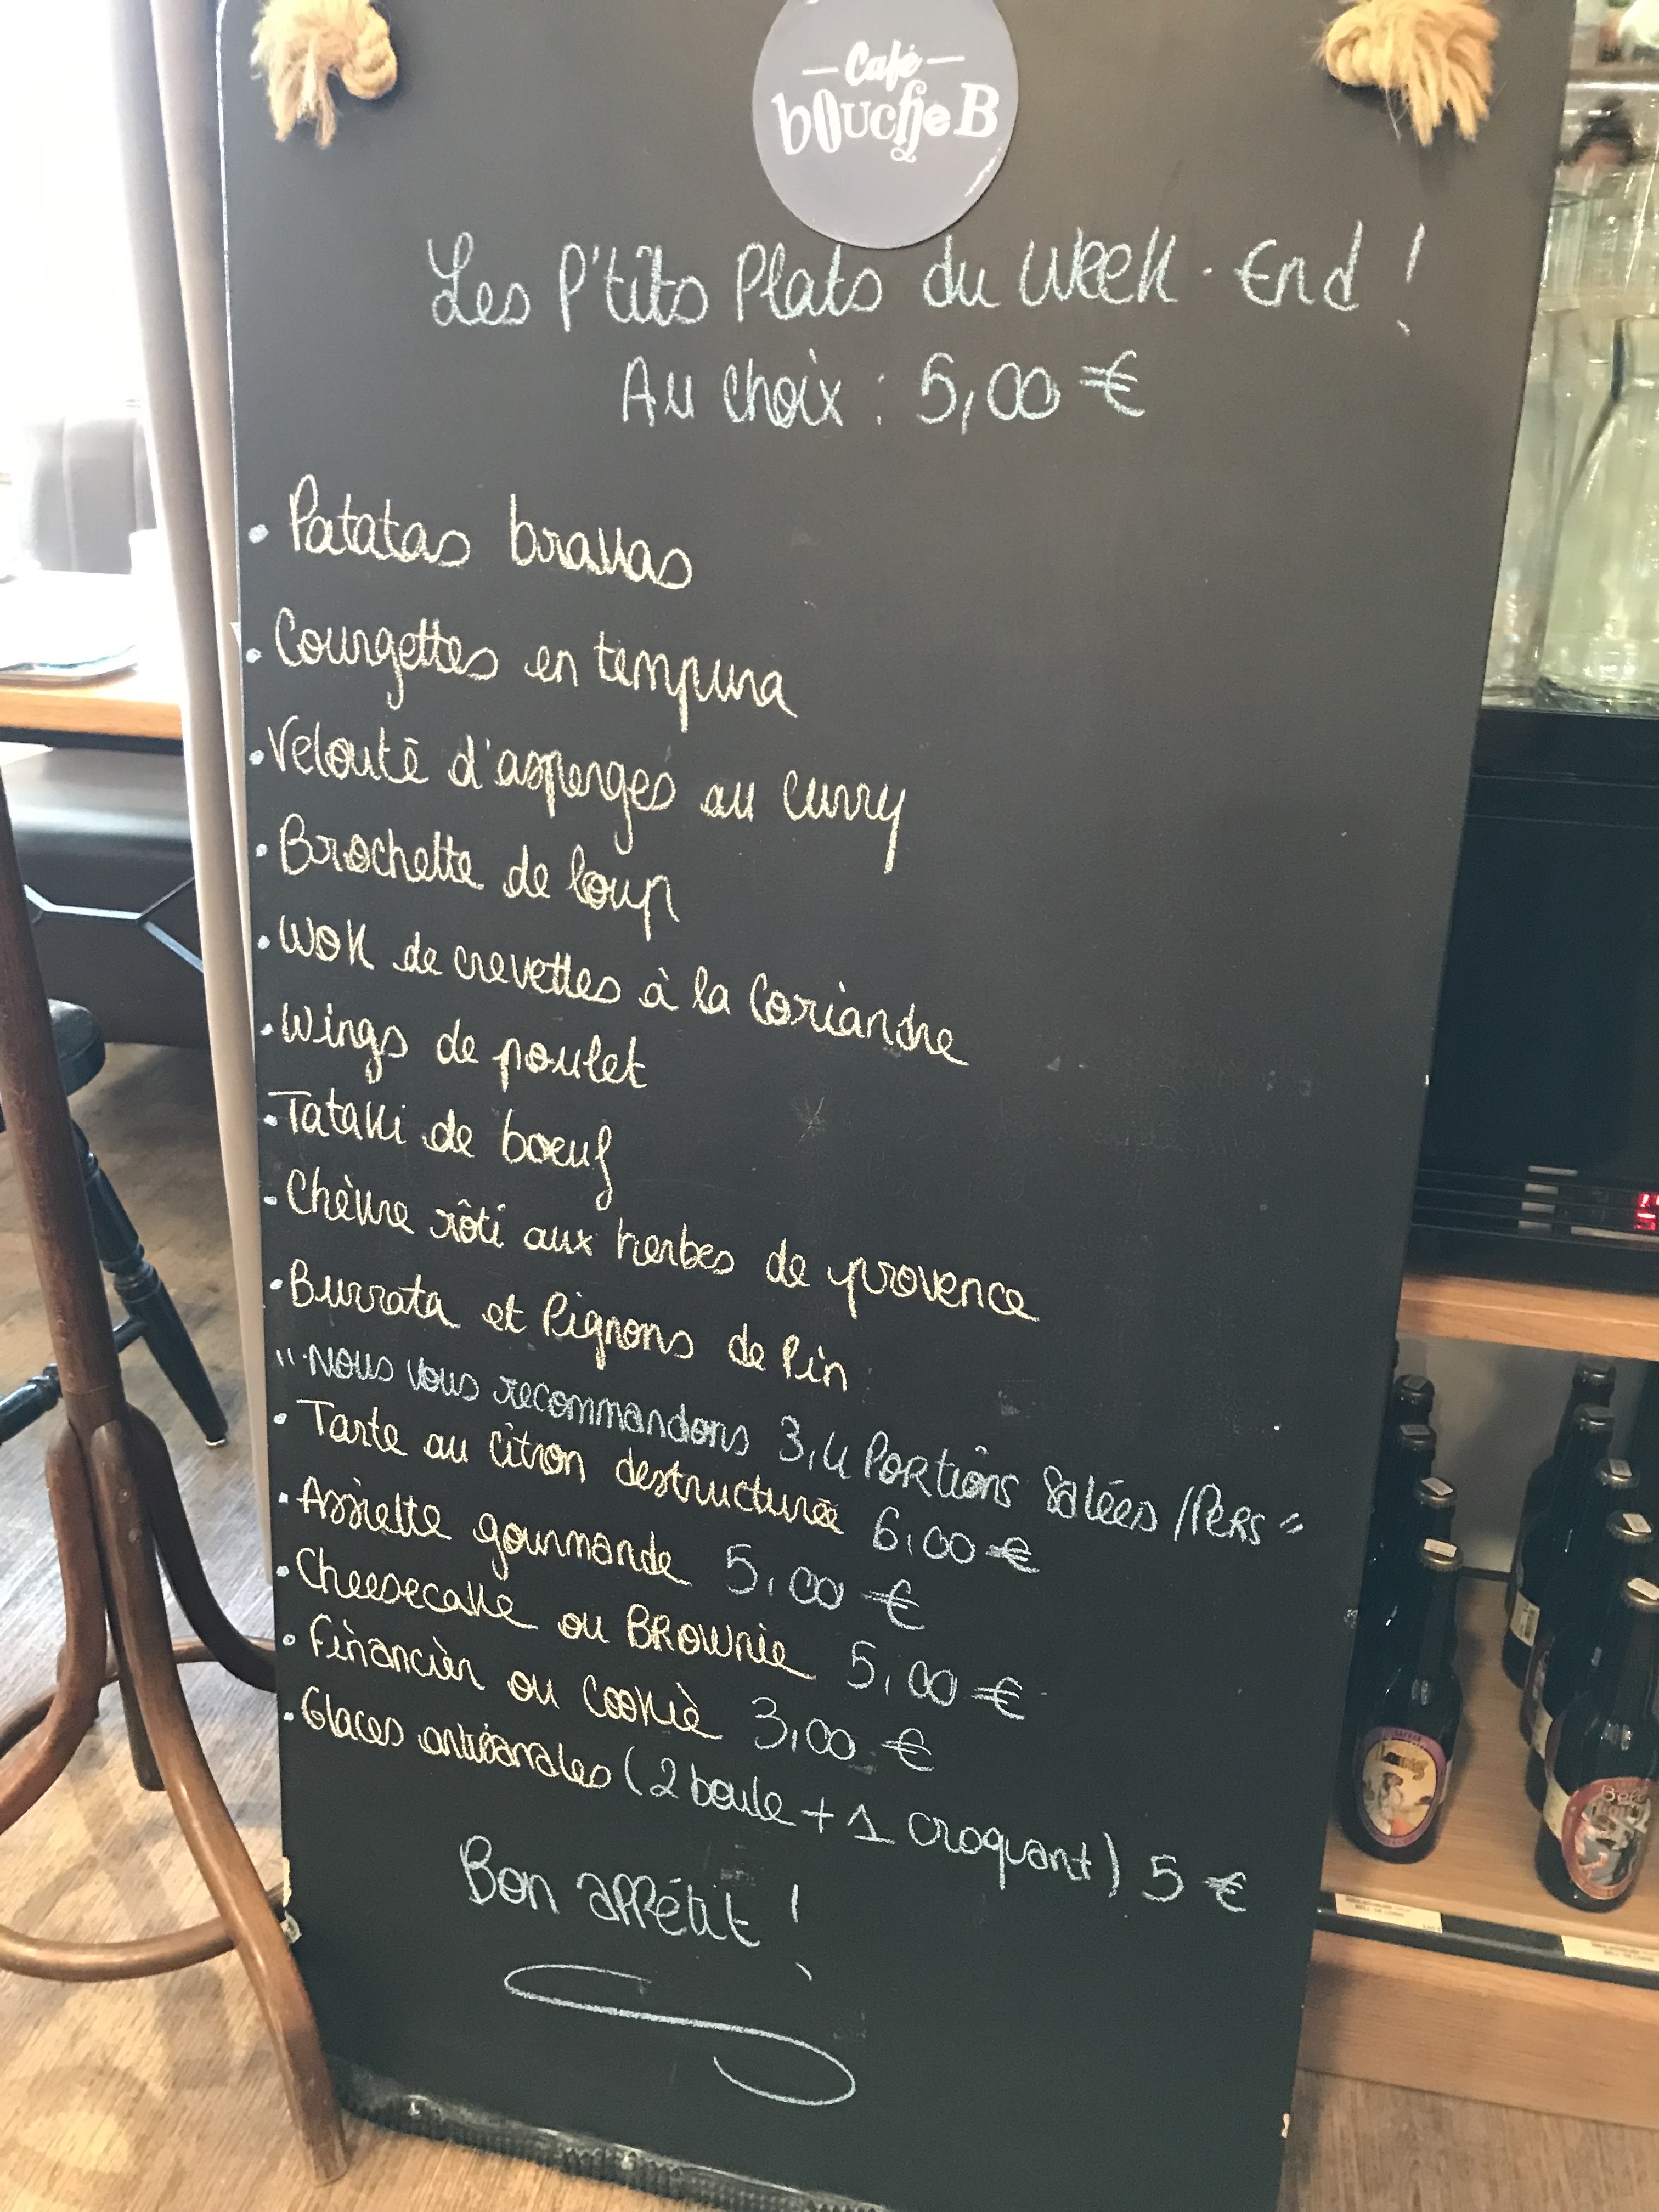 Café
boucheB
Les P'tits Plats du Week-End !
Au choix : 5,00 €
• Patatas bravas
• Courgettes en tempura
• Velouté d'asperges au curry
• Brochette de loup
• Wok de crevettes à la Coriandre
• Wings de poulet
• Tataki de boeuf
• Chèvre rôti aux herbes de provence
• Burrata et Pignons de Pin
"Nous vous recommandons 3,4 Portions Salées /Pers"
• Tarte au citron destructurée 6,00 €
• Assiette gourmande 5,00 €
• Cheesecake ou Brownie 5,00 €
• Financier ou Cookie 3,00 €
• Glaces artisanales (2 boule + 1 croquant) 5 €
Bon appétit !